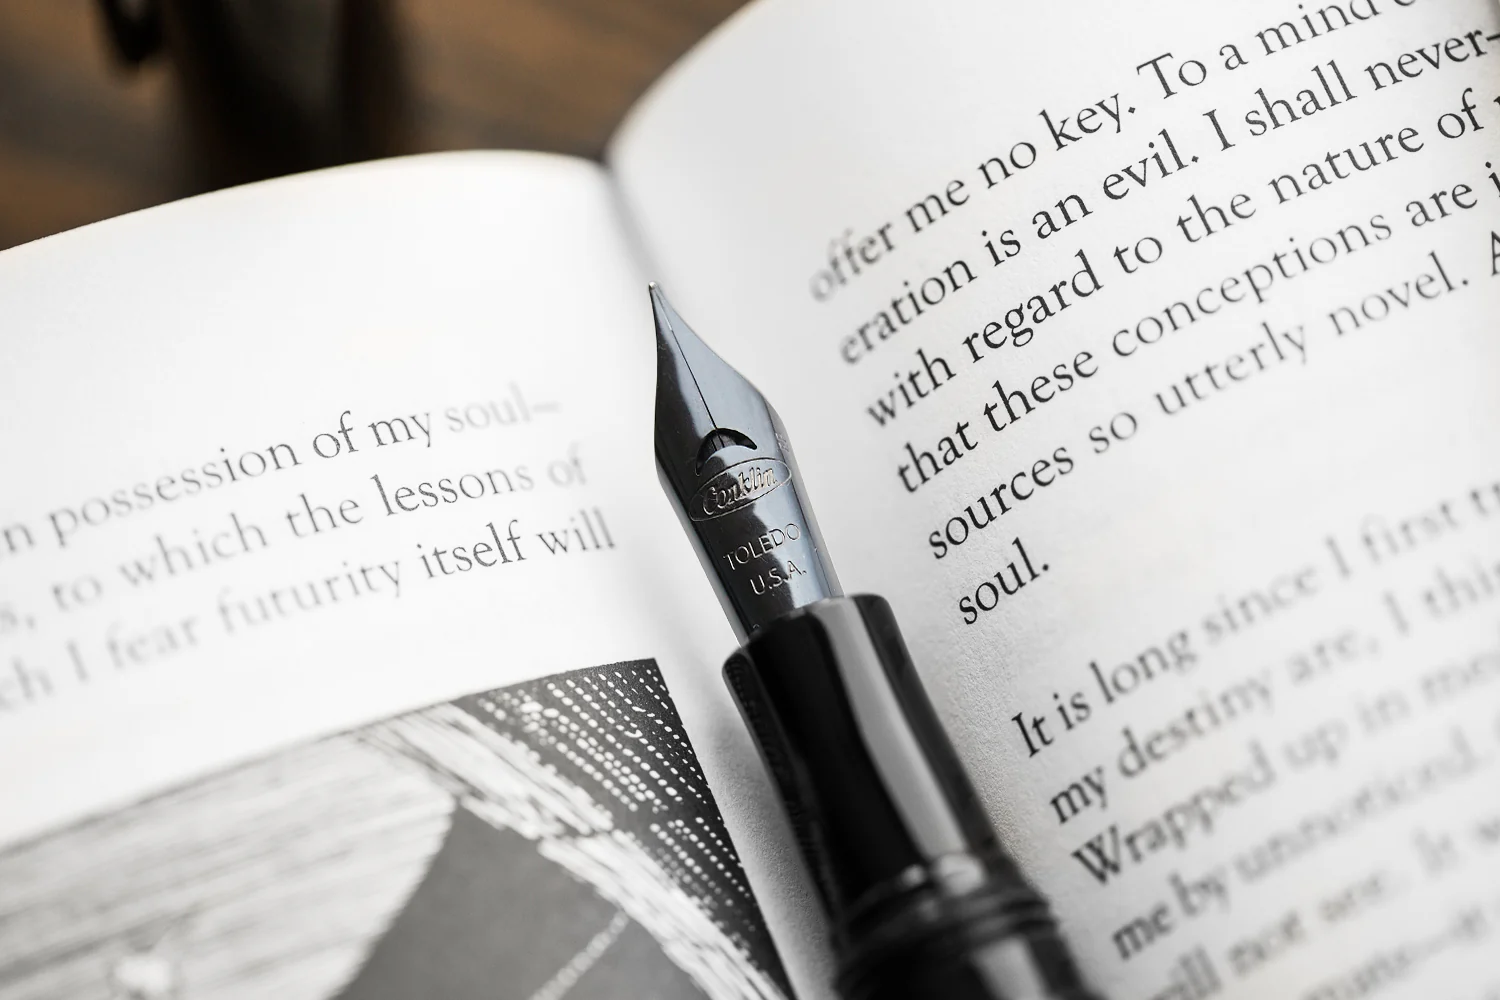 n possession of my soul—
s, to which the lessons of
ch I fear futurity itself will
Conklin
TOLEDO
U.S.A.
offer me no key. To a mind
eration is an evil. I shall never—
with regard to the nature of
that these conceptions are
sources so utterly novel. A
soul.
It is long since I first tr
my destiny are, I thin
Wrapped up in
me by unnoticed.
will not see. It w